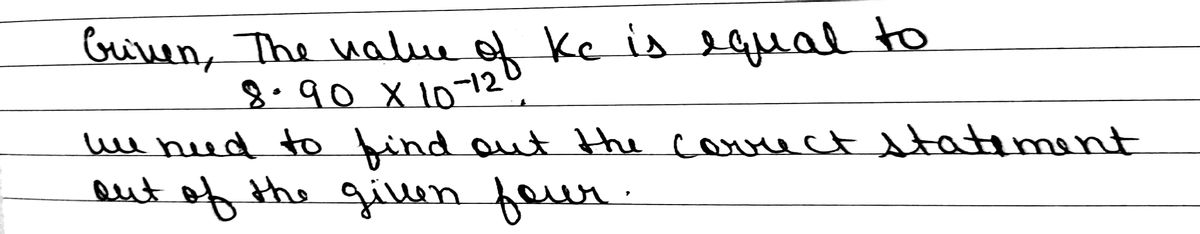 Given, The value of Kc is equal to
8.90 X 10⁻¹².
we need to find out the correct statement
out of the given four.